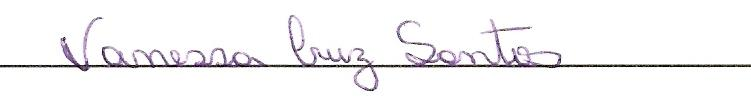 Vanessa Cruz Santos